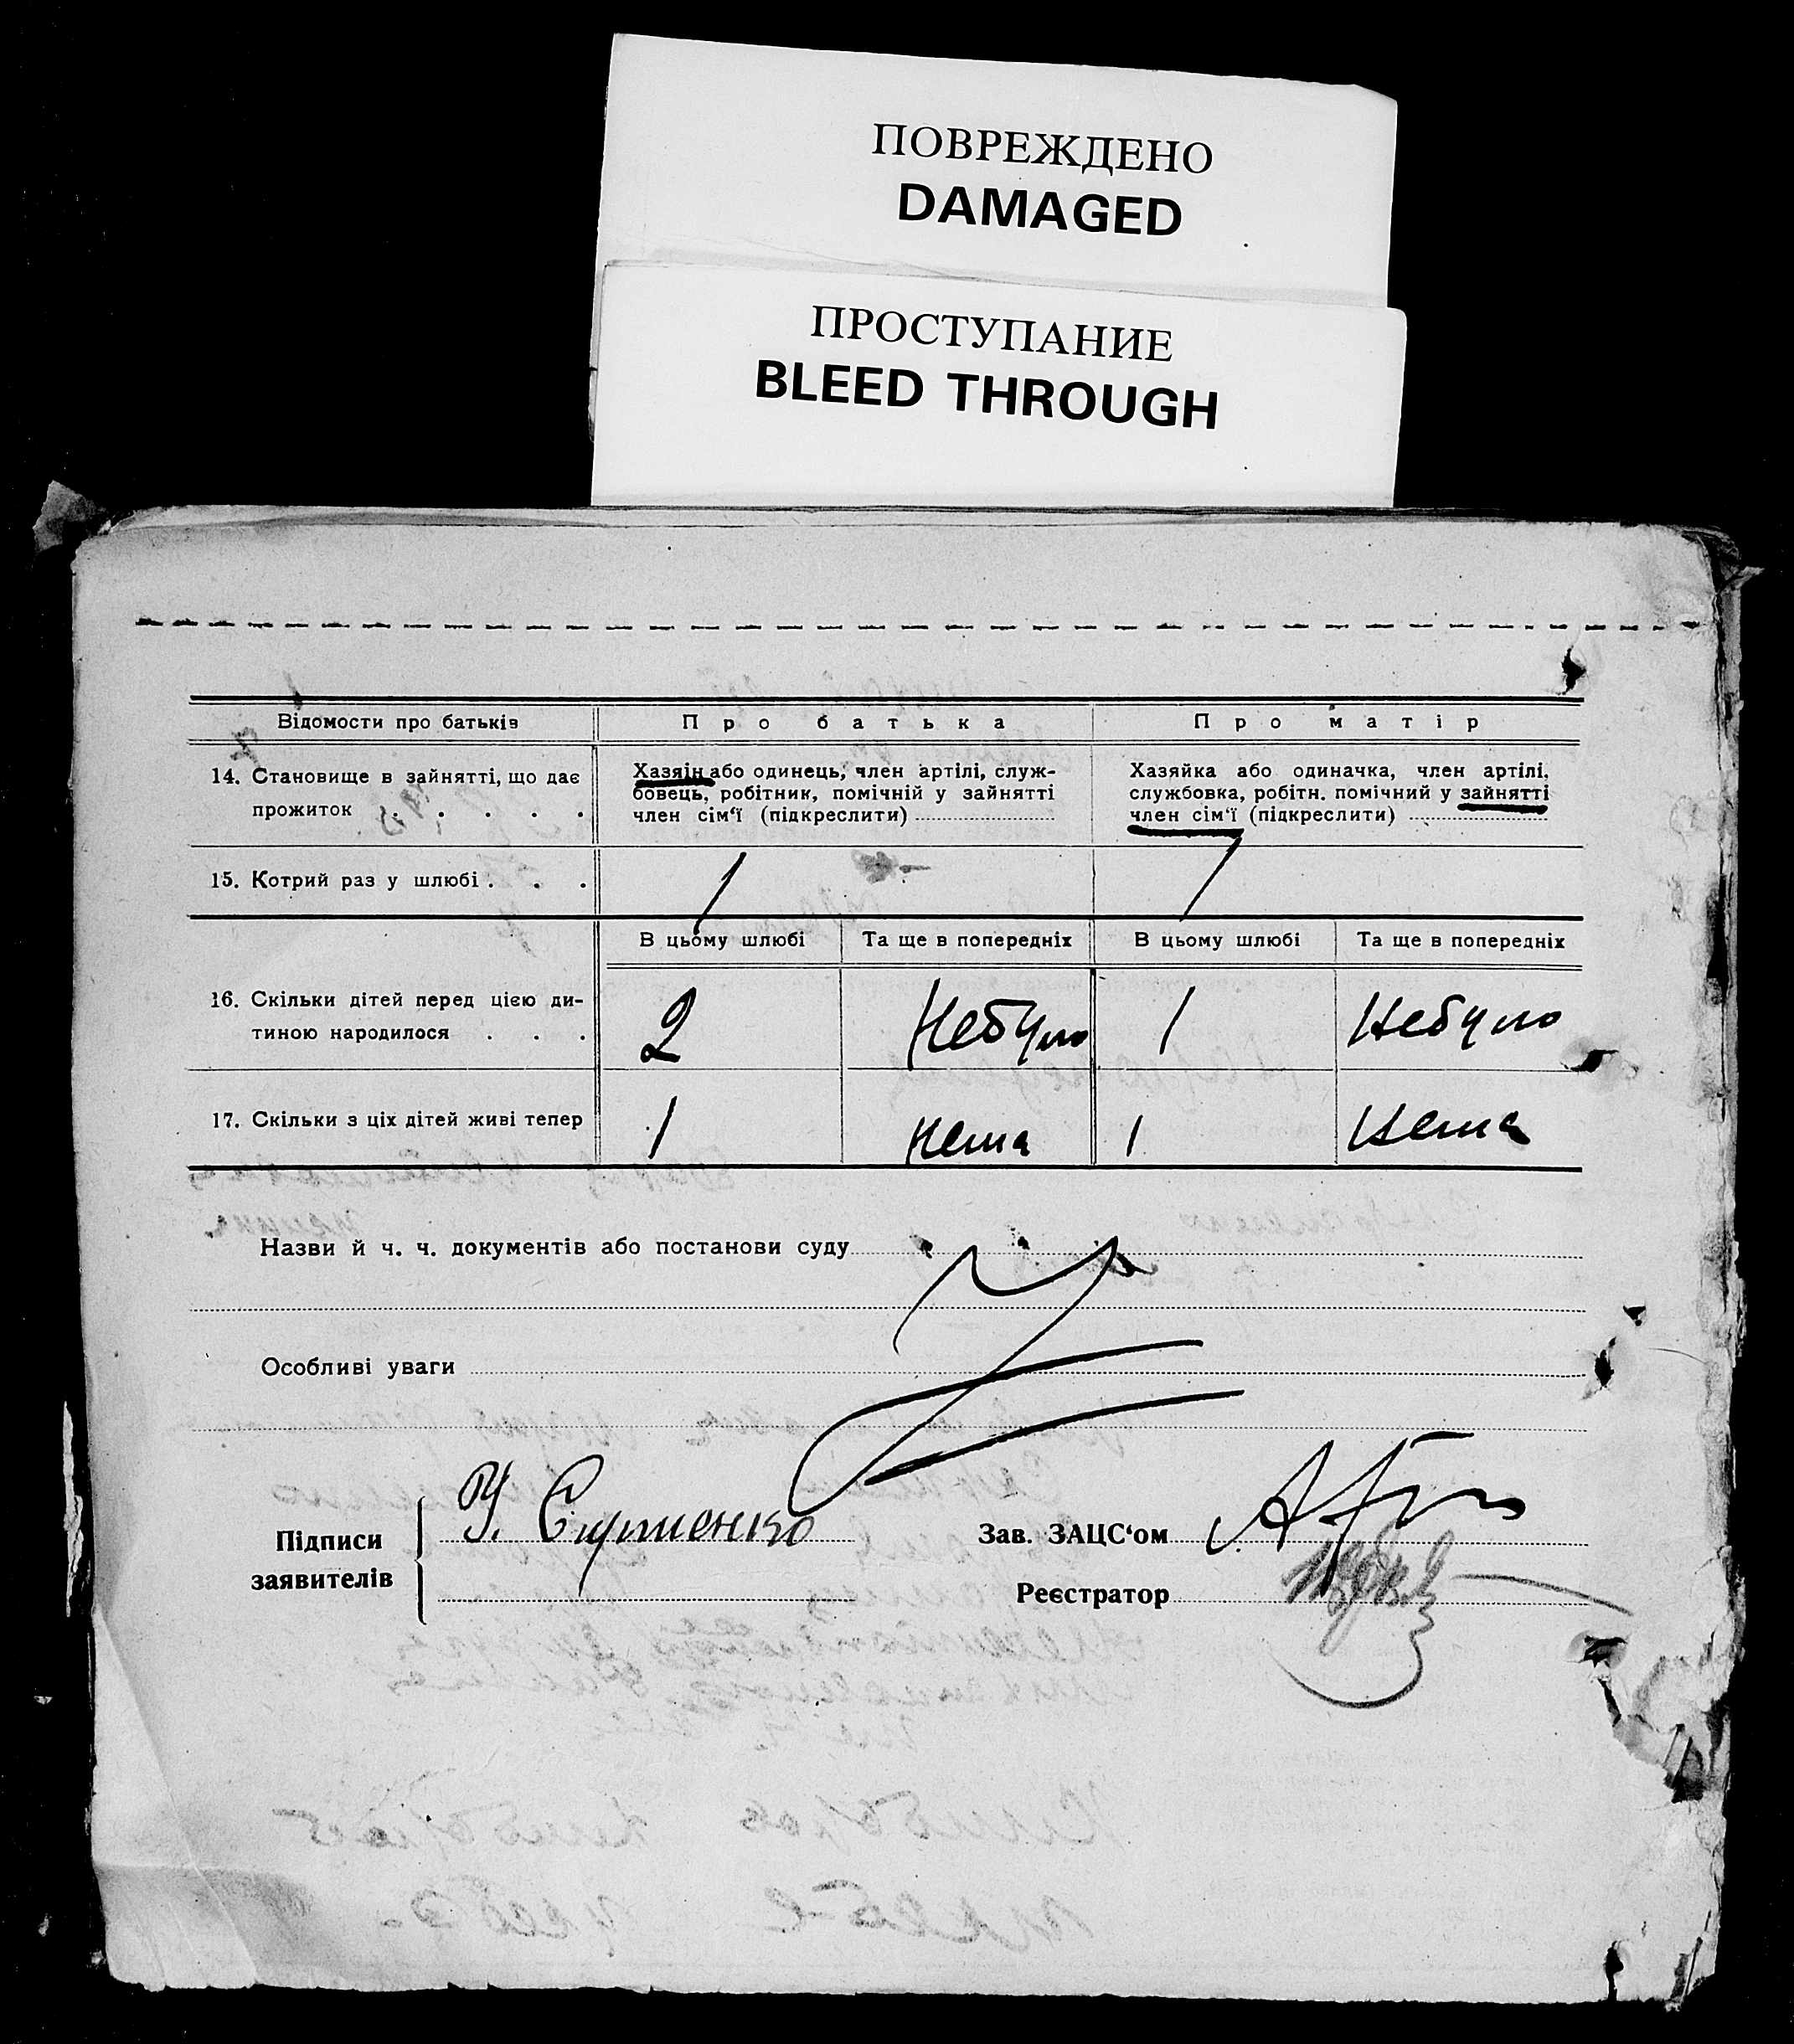 ПОВРЕЖДЕНО
DAMAGED
ПРОСТУПАНИЕ
BLEED THROUGH
Відомости про батьків
Про батька
Про матір
14. Становище в зайнятті, що дає
прожиток . . . . .
Хазяін або одинець, член артілі, служ-
бовець, робітник, помічній у зайнятті
член сім‘ї (підкреслити)
Хазяйка або одиначка, член артілі,
службовка, робітн. помічний у зайнятті
член сім‘ї (підкреслити)
15. Котрий раз у шлюбі . . .
1
1
В цьому шлюбі
Та ще в попередніх
В цьому шлюбі
Та ще в попередніх
16. Скільки дітей перед цією ди-
тиною народилося . . .
2
Небуло
1
Небуло
17. Скільки з ціх дітей живі тепер
1
нема
1
Нема
Назви й ч. ч. документів або постанови суду
Особливі уваги
Підписи
заявителів
Зав. ЗАЦС‘ом
Реєстратор